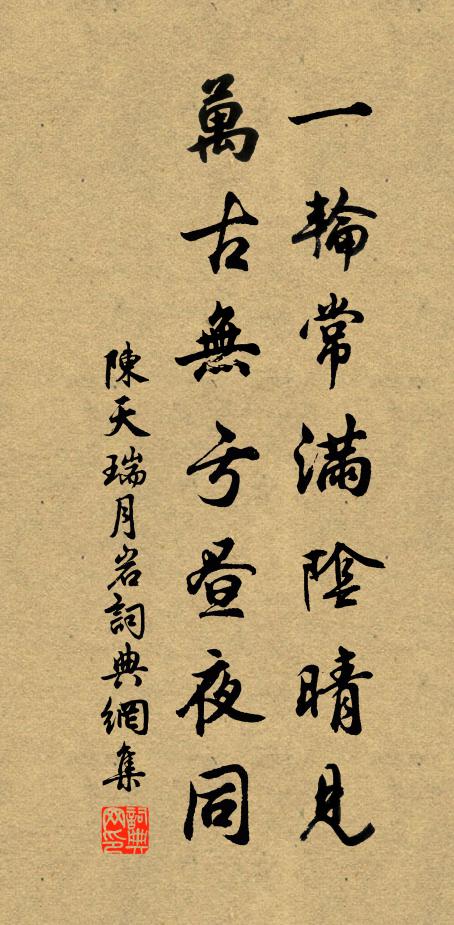 一輪常滿陰晴見
萬古無亏昼夜同
陳天瑞月岩詞典網集
詞典网印